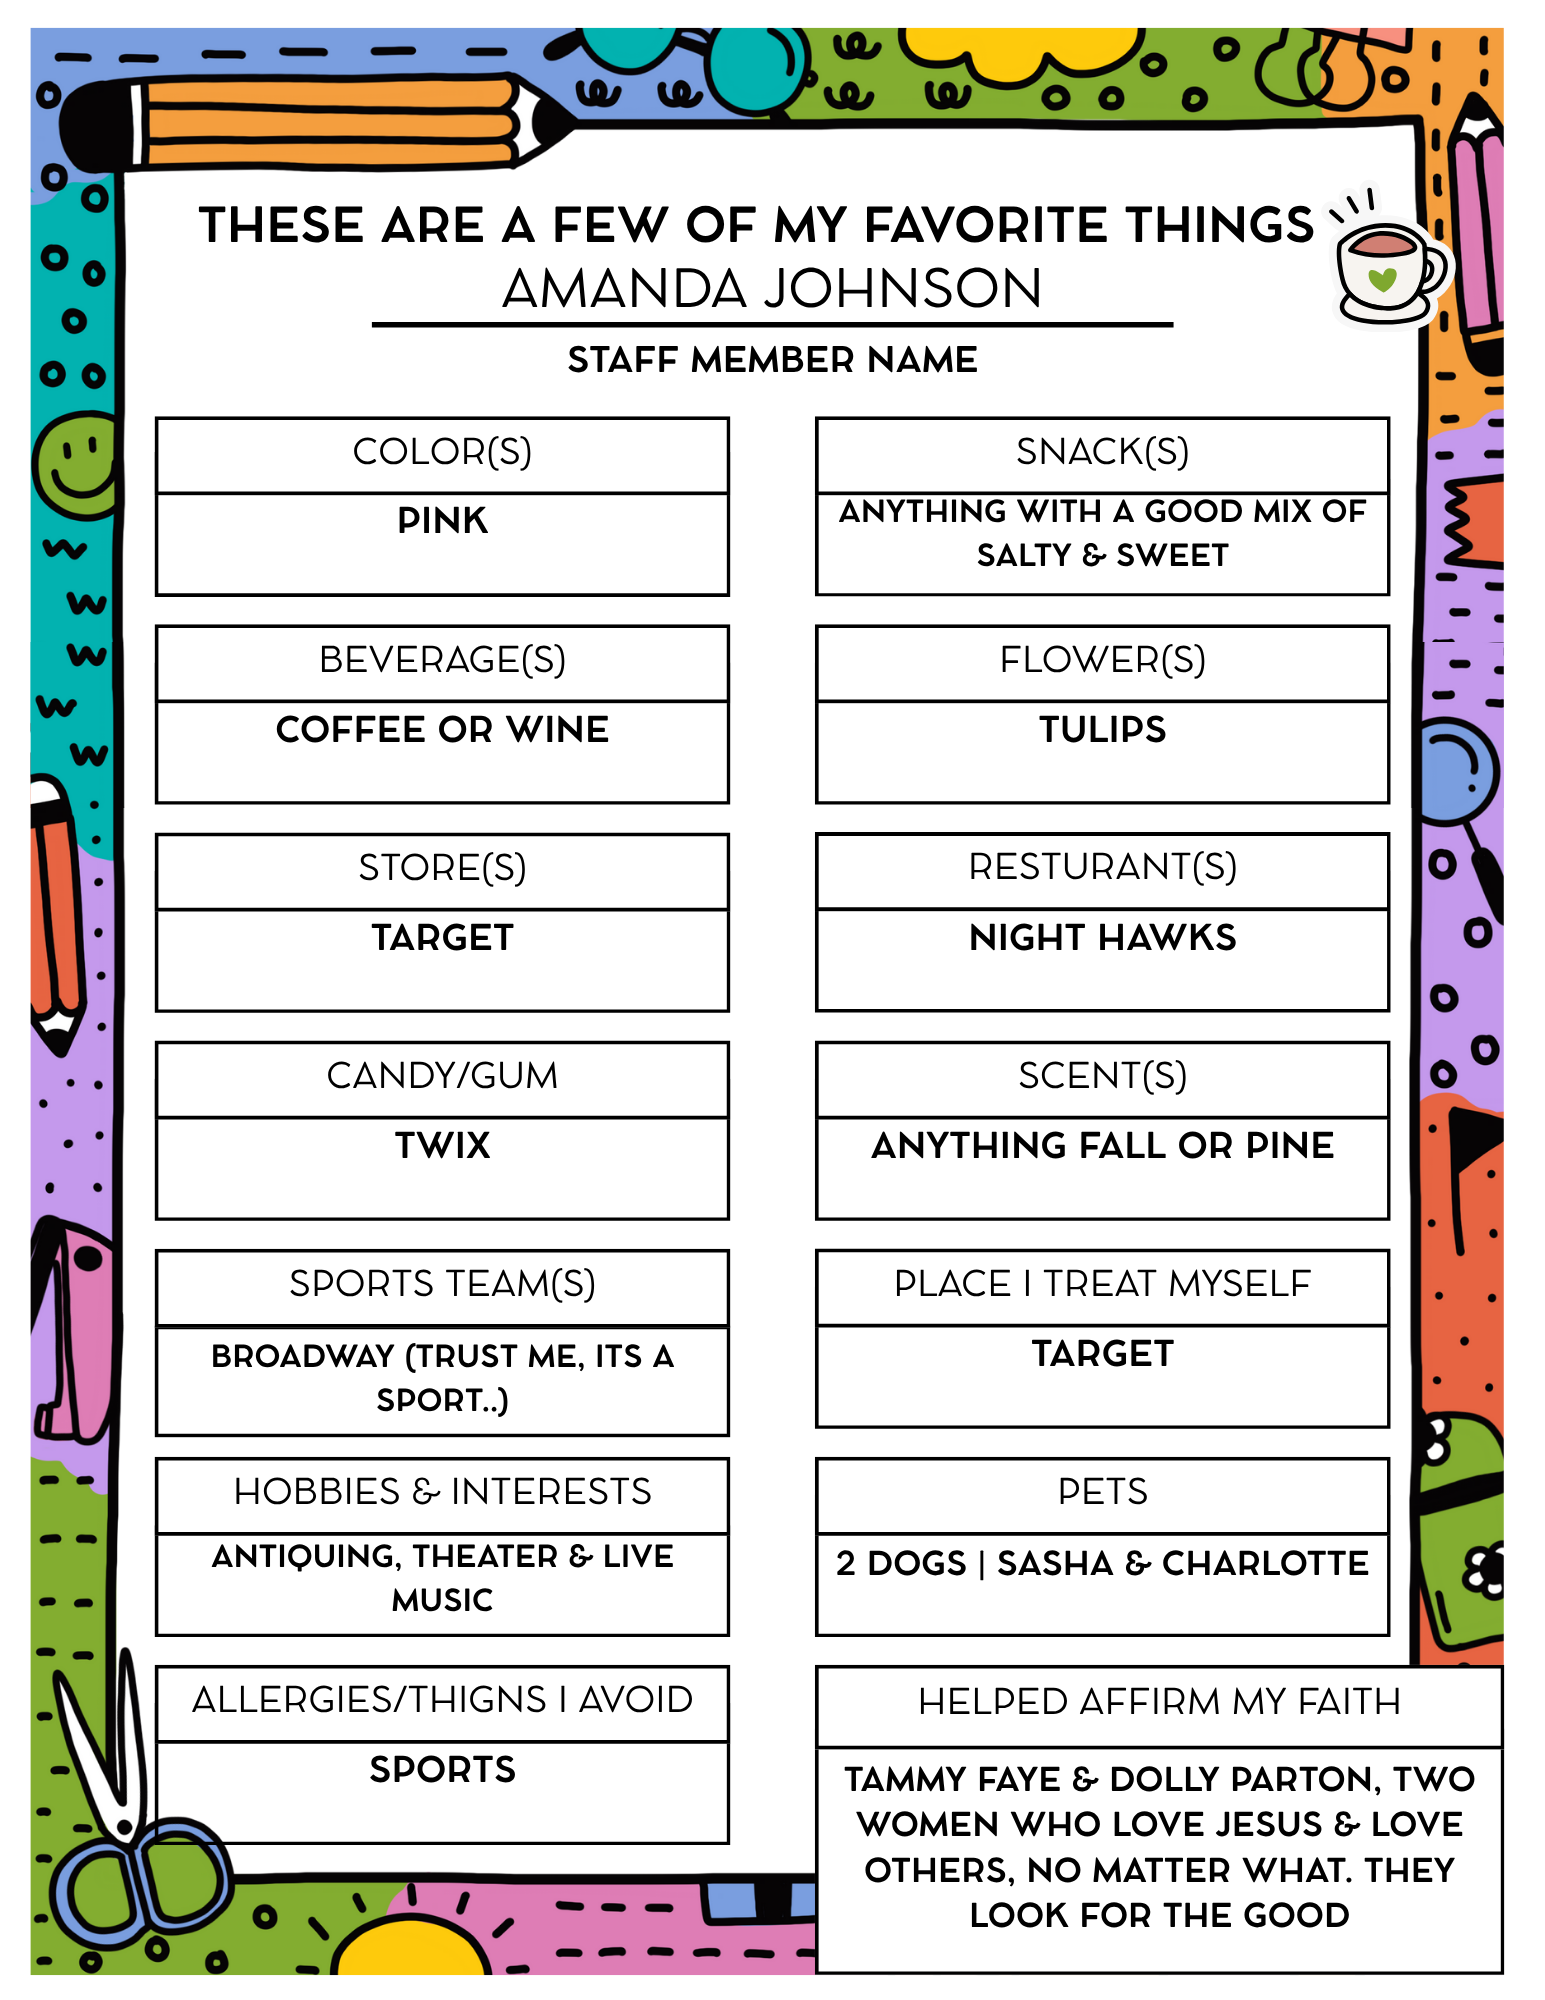 THESE ARE A FEW OF MY FAVORITE THINGS
AMANDA JOHNSON
STAFF MEMBER NAME
COLOR(S)
PINK
SNACK(S)
ANYTHING WITH A GOOD MIX OF
SALTY & SWEET
BEVERAGE(S)
COFFEE OR WINE
FLOWER(S)
TULIPS
STORE(S)
TARGET
RESTURANT(S)
NIGHT HAWKS
CANDY/GUM
TWIX
SCENT(S)
ANYTHING FALL OR PINE
SPORTS TEAM(S)
BROADWAY (TRUST ME, ITS A
SPORT..)
PLACE I TREAT MYSELF
TARGET
HOBBIES & INTERESTS
ANTIQUING, THEATER & LIVE
MUSIC
PETS
2 DOGS | SASHA & CHARLOTTE
ALLERGIES/THIGNS I AVOID
SPORTS
HELPED AFFIRM MY FAITH
TAMMY FAYE & DOLLY PARTON, TWO
WOMEN WHO LOVE JESUS & LOVE
OTHERS, NO MATTER WHAT. THEY
LOOK FOR THE GOOD